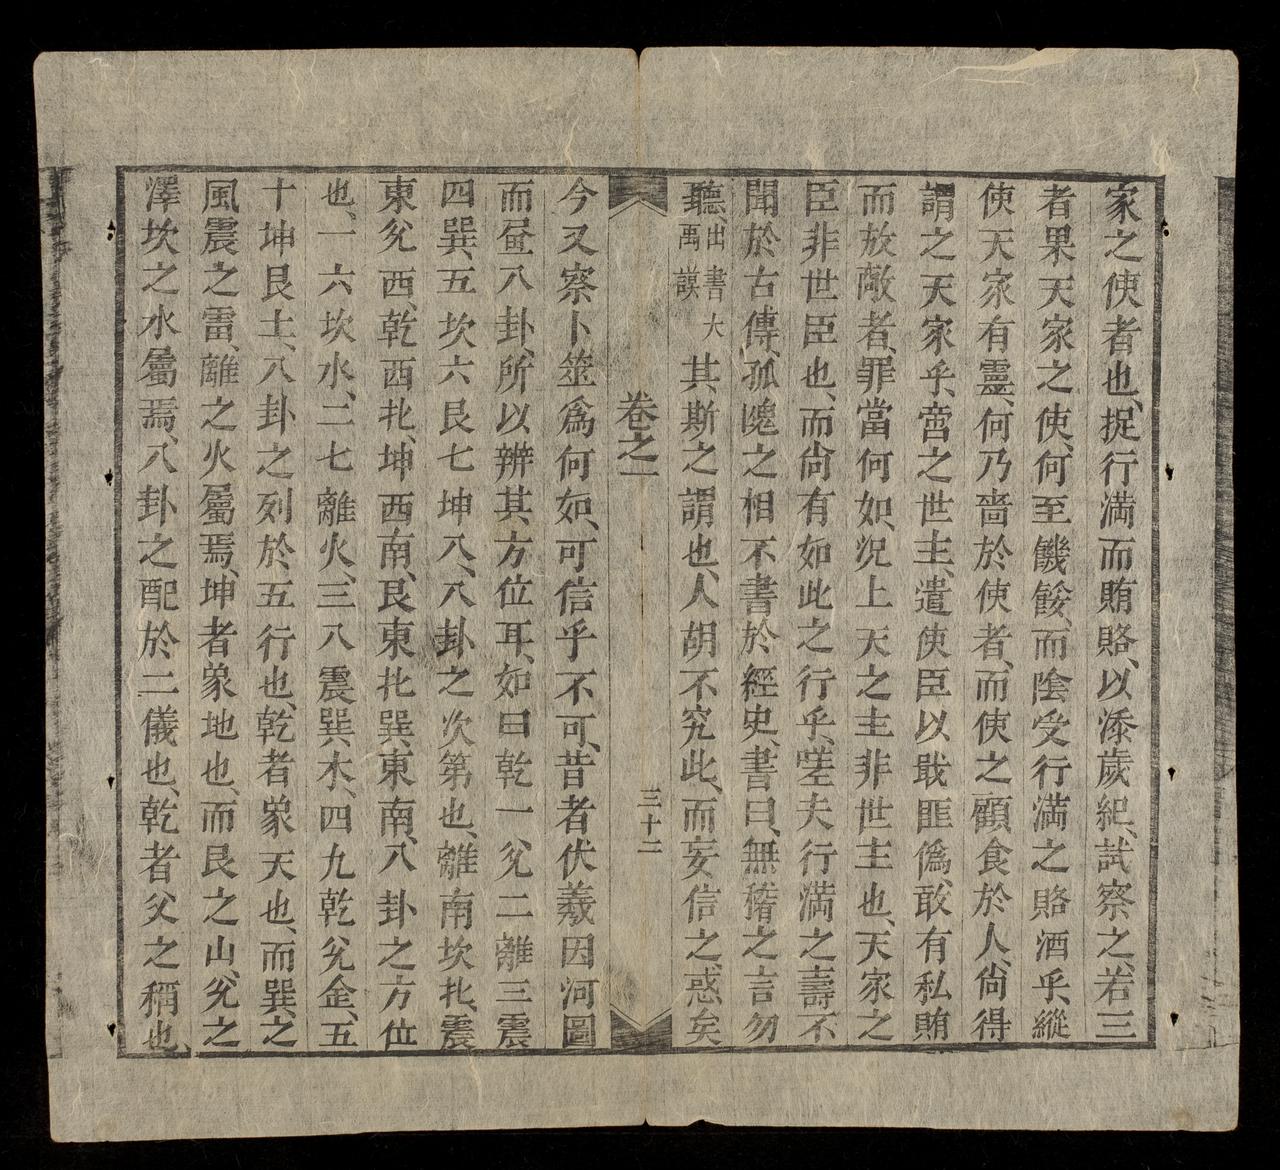 家之使者也、捉行満而賄賂、以添歲紀、試察之、若三
者果天家之使、何至饑餒、而陰受行満之賂酒乎、縱
使天家有靈、何乃嗇於使者、而使之顧食於人、尙得
謂之天家乎、啻之世主、遣使臣以戢匪僞、敢有私賄
而放敵者、罪當何如、況上天之主非世主也、天家之
臣非世臣也、而尙有如此之行乎、嗟夫行満之壽不
聞於古傳、孤䰟之相不書於經史、書曰、無稽之言勿
聽、出書大禹謨其斯之謂也、人胡不究此、而妄信之、惑矣
卷之一 三十二
今又察卜筮爲何如、可信乎不可、昔者伏羲因河圖
而畫八卦、所以辨其方位耳、如曰乾一、兊二離三震
四巽、五坎六艮七坤八、八卦之次第也、離南坎北、震
東兊西、乾西北、坤西南、艮東北巽東南、八卦之方位
也、一六坎水、二七離火、三八震巽木、四九乾兊金、五
十坤艮土、八卦之列於五行也、乾者象天也、而巽之
風震之雷、離之火屬焉、坤者象地也、而艮之山、兊之
澤坎之水屬焉、八卦之配於二儀也、乾者父之稱也、